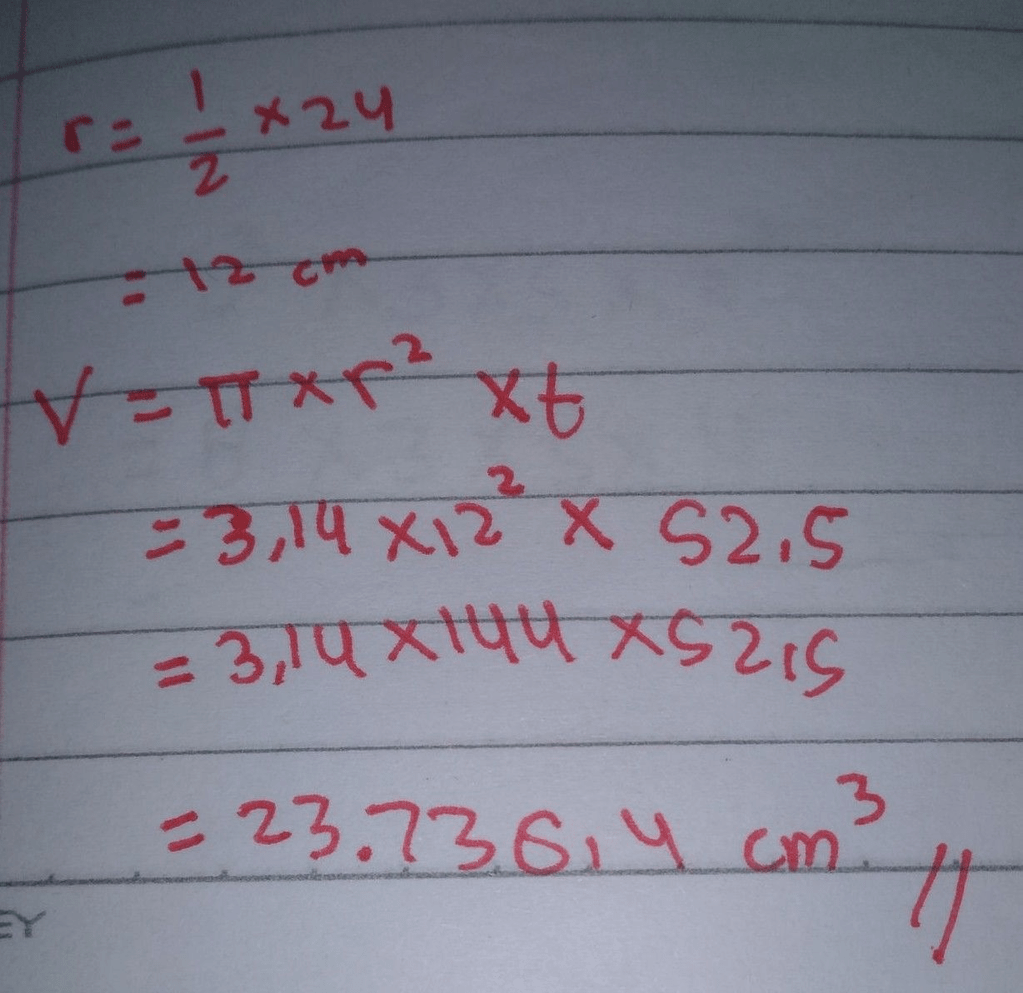 r = 1/2 × 24
= 12 cm
V = π × r² × t
= 3,14 × 12² × 52,5
= 3,14 × 144 × 52,5
= 23.736,4 cm³ //
EY